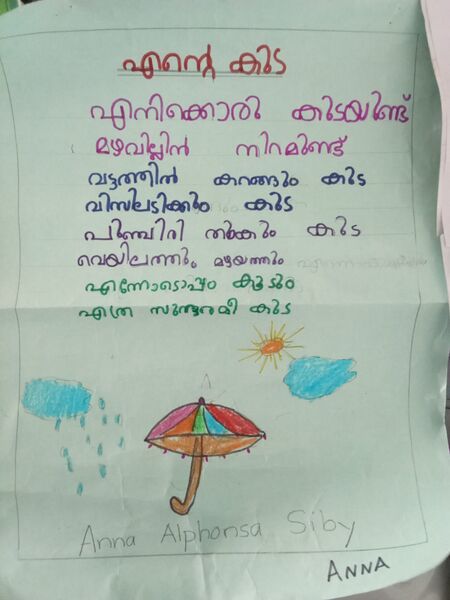 എന്റെ കുട
എനിക്കൊരു കുടയുണ്ട്
മഴവില്ലിൻ നിറമുണ്ട്
വട്ടത്തിൽ കറങ്ങും കുട
വിസിലടിക്കും കുട
പുഞ്ചിരി തൂകും കുട
വെയിലത്തും മഴയത്തും
എന്നോടൊപ്പം കൂടും
എത്ര സുന്ദരമീ കുട
Anna Alphonsa Siby
ANNA